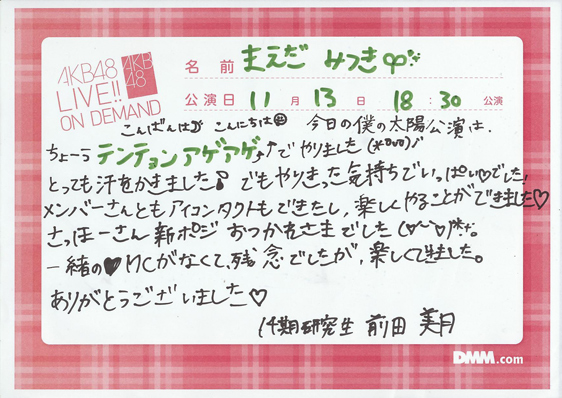 AKB48
LIVE!!
ON DEMAND
AKB
48
名前 まえだ みつき
公演日 11月 13日 18:30 公演
こんばんは♪ こんにちは 今日の僕の太陽公演は、
ちょーう テンテョンアゲアゲ♪♪でやりました(*OvO)♪
とっても汗をかきました♪ でもやりきった気持ちでいっぱい♡でした!
メンバーさんともアイコンタクトもできたし、楽しくやることができました♡
さっほーさん新ポジおつかれさまでした
一緒の♥MCがなくて、残念でしたが、楽しくできました。
ありがとうございました♡
14期研究生 前田 美月
DMM.com